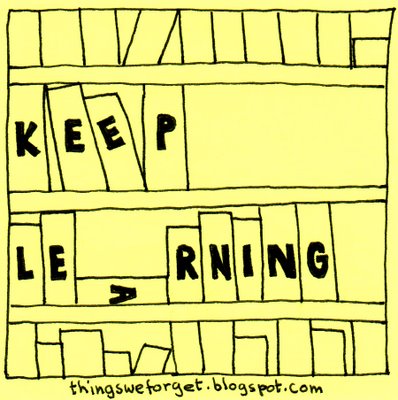 KEEP
LEARNING
thingsweforget.blogspot.com